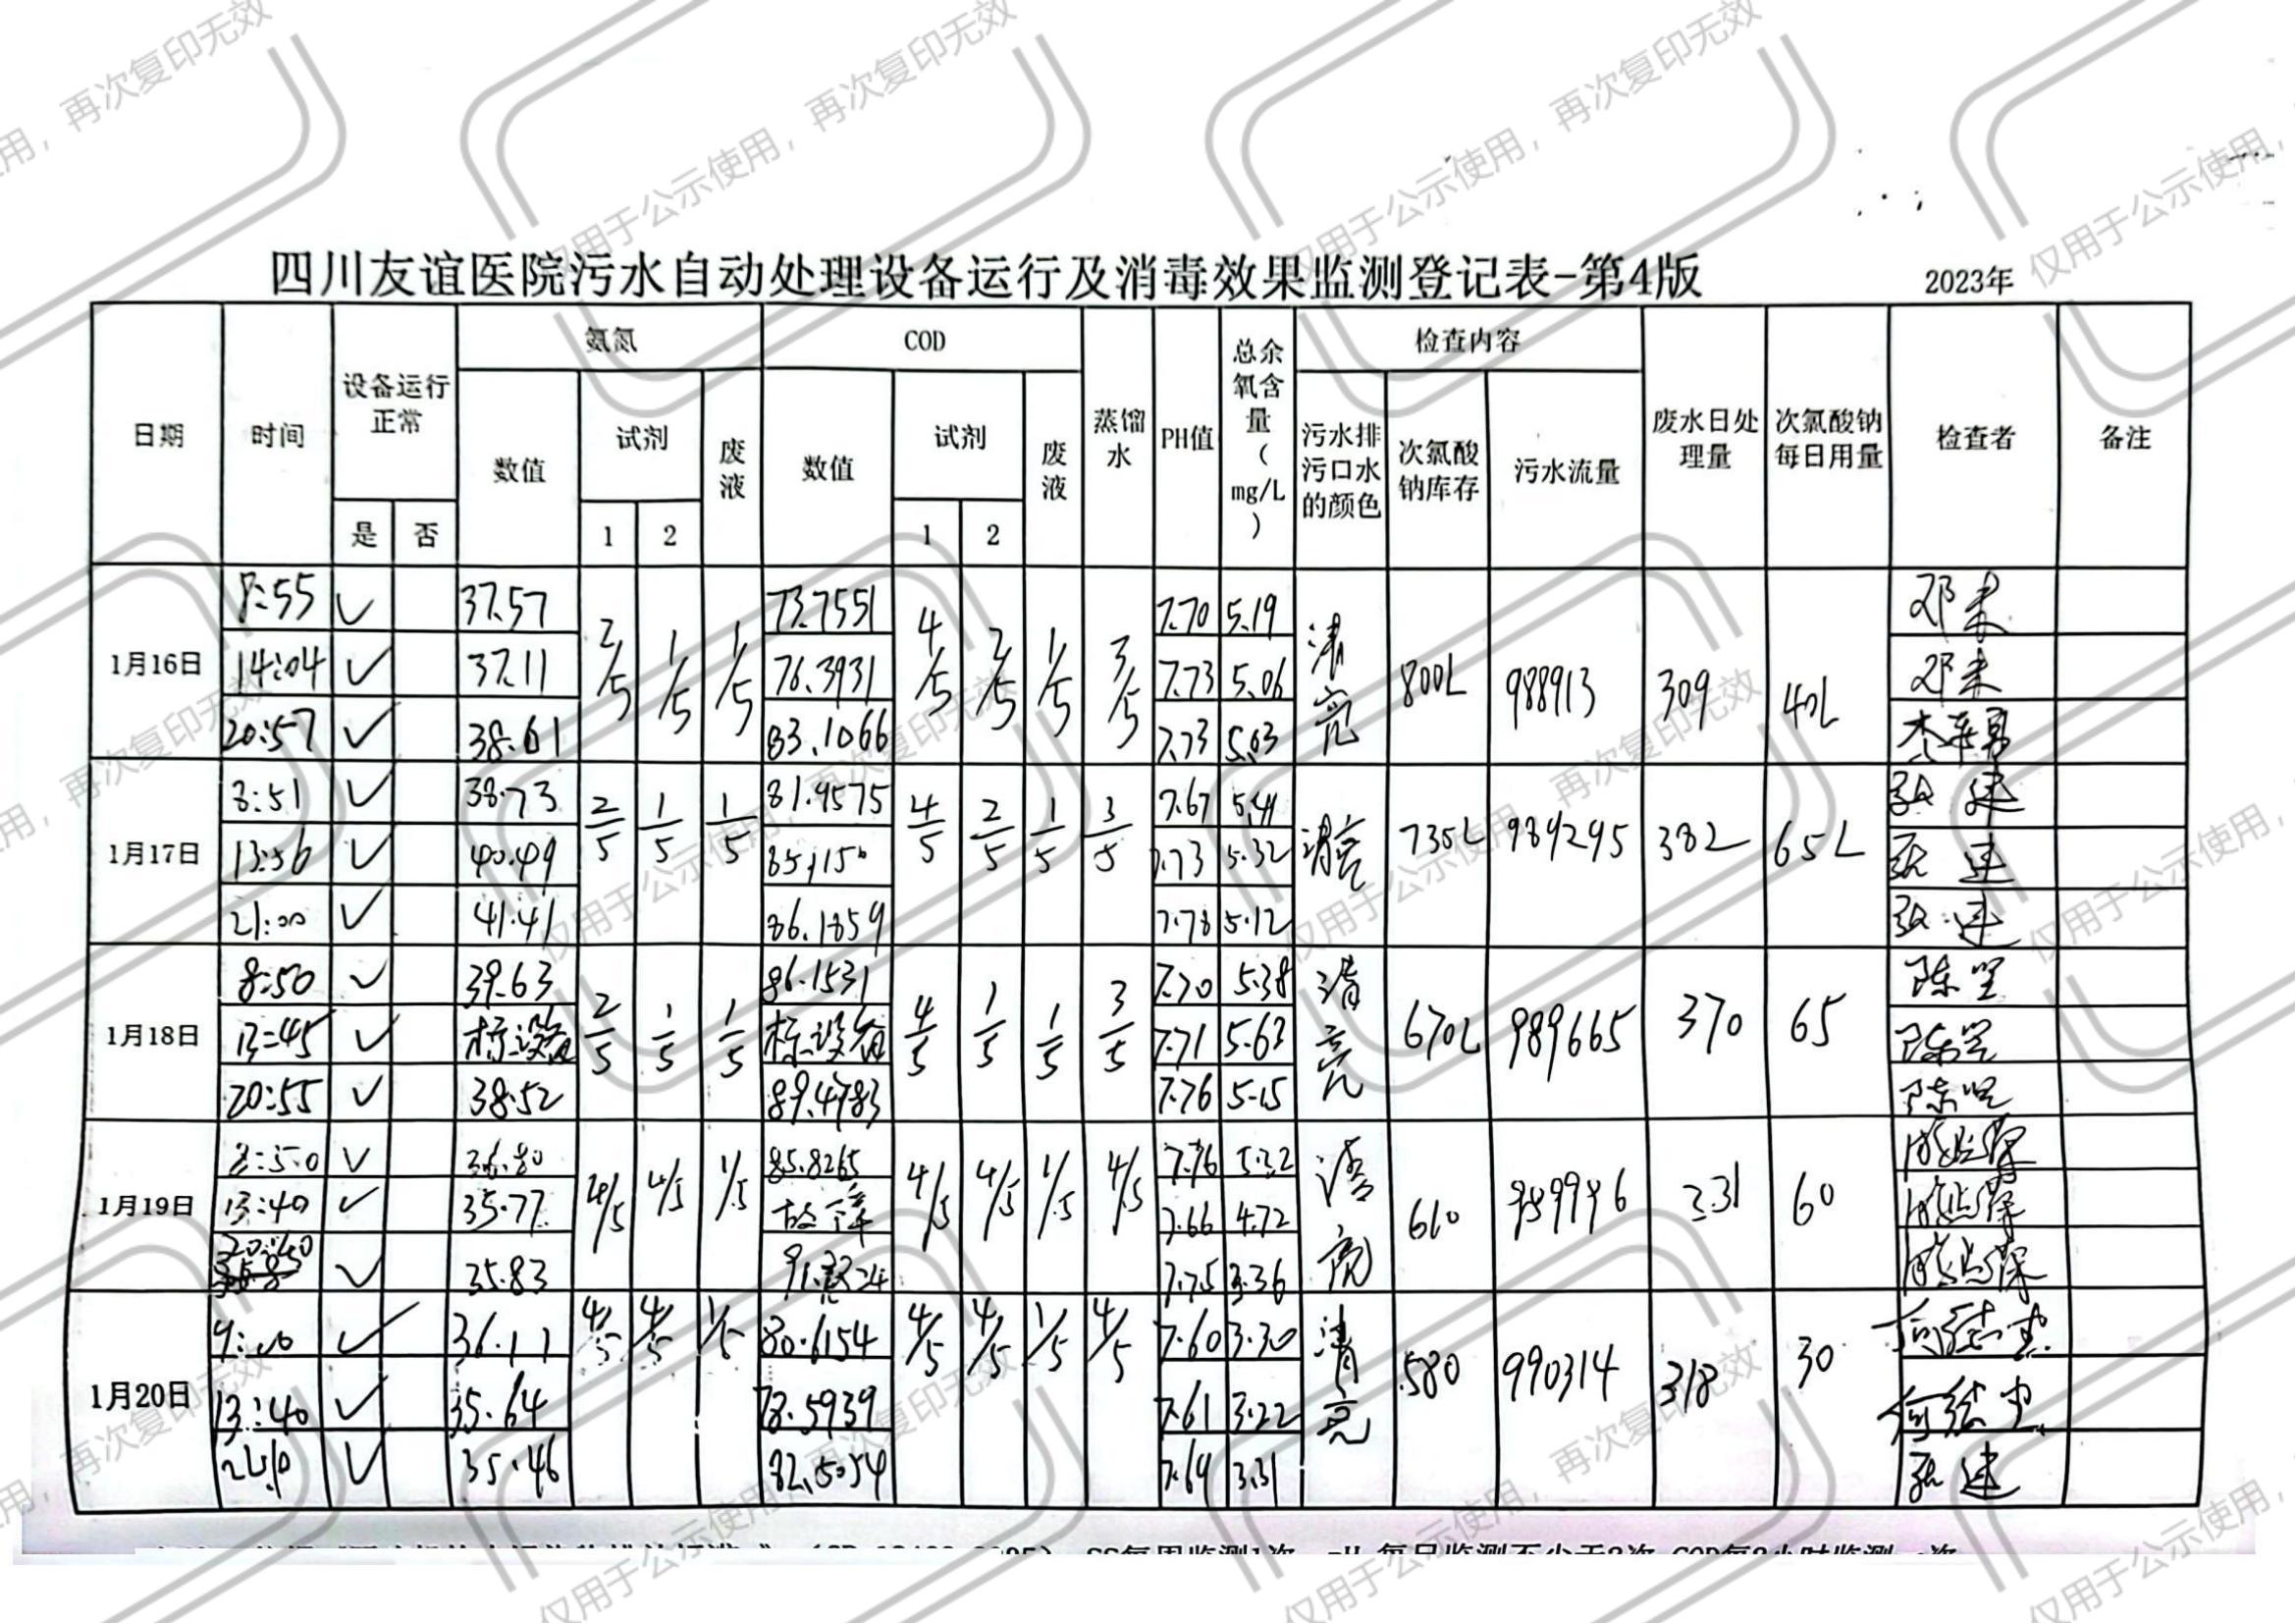 四川友谊医院污水自动处理设备运行及消毒效果监测登记表-第4版 2023年
日期 时间 设备运行正常 氨氮 COD 蒸馏水 PH值 总余氧含量(mg/L) 检查内容 废水日处理量 次氯酸钠每日用量 检查者 备注
数值 试剂 废液 数值 试剂 废液 污水排污口水的颜色 次氯酸钠库存 污水流量
是 否 1 2 1 2
1月16日 8:55 ✓ 37.57 2/5 1/5 1/5 73.7551 4/5 2/5 1/5 3/5 7.70 5.19 清亮 800L 988913 309 40L 邓未
14:04 ✓ 37.11 76.3931 7.73 5.06 邓未
20:57 ✓ 38.61 83.1066 7.73 5.03
1月17日 8:51 ✓ 38.73 2/5 1/5 1/5 81.9575 4/5 2/5 1/5 3/5 7.67 5.41 清亮 735L 989295 382 65L 张建
13:56 ✓ 40.49 7.73 5.32 张建
21:00 ✓ 41.41 86.1859 7.78 5.12 张建
1月18日 8:50 ✓ 39.63 2/5 1/5 1/5 86.1531 4/5 1/5 1/5 3/5 7.70 5.38 清亮 670L 989665 370 65 陈罡
13:45 ✓ 7.71 5.63 陈罡
20:55 ✓ 38.52 89.4783 7.76 5.15 陈罡
1月19日 8:50 ✓ 36.80 4/5 4/5 1/5 85.8265 4/5 4/5 1/5 4/5 7.76 5.32 清亮 610 989996 331 60
13:40 ✓ 35.77 故障 7.66 4.72
20:40 ✓ 35.83 7.75 3.36
1月20日 ✓ 36.11 4/5 4/5 1/5 80.6154 4/5 4/5 1/5 4/5 7.60 3.30 清亮 580 990314 318 30
13:40 ✓ 35.64 78.5939 7.61 3.22
✓ 35.46 82.5054 7.69 3.31 张建
仅用于公示使用，再次复印无效